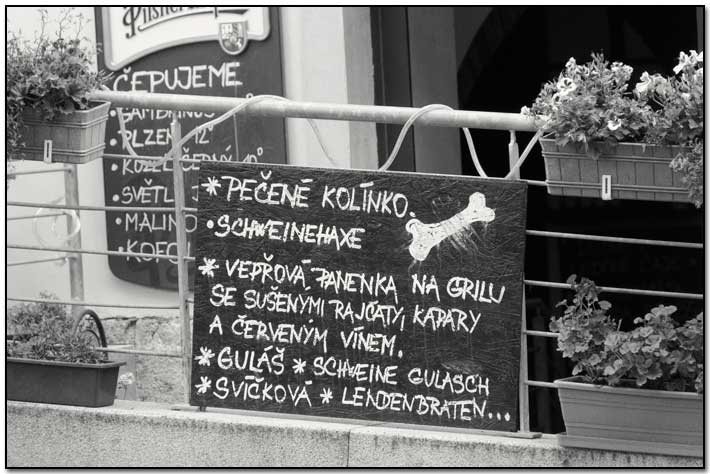 Pilsner
ČEPUJEME
GAMBRINUS
PLZEŇ 12°
KOZEL ČERNÝ 10°
SVĚTL
• MALINO
• KOFO
* PEČENÉ KOLÍNKO.
• SCHWEINEHAXE
* VEPŘOVÁ PANENKA NA GRILU
SE SUŠENÝMI RAJČATY, KAPARY
A ČERVENÝM VÍNEM.
* GULÁŠ * SCHWEINE GULASCH
* SVÍČKOVÁ * LENDENBRATEN...